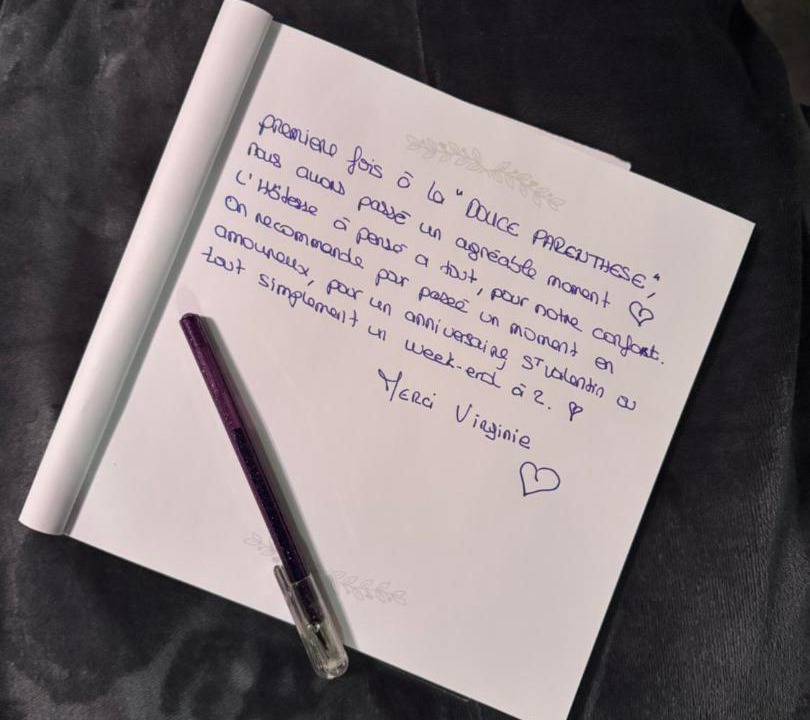 premiere fois à la "DOUCE PARENTHESE",
nous avons passé un agréable moment ♡
L'Hôtesse à pensé a tout, pour notre confort.
on recommande par passé un moment en
amoureux, pour un anniversaire St Valentin ou
tout simplement un week-end à 2. ♡
Merci Virginie
♡